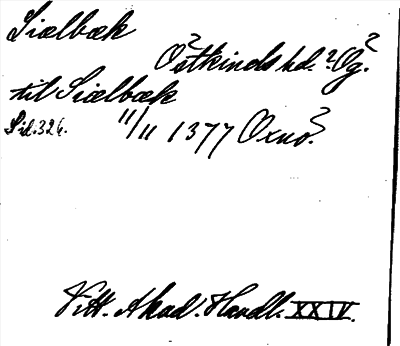 Siælbæk
Östkinds hd. Ög.
til Siælbæk
Sid. 326. 11/11 1377 Oxnö.
Vitt. Akad. Handl. XXIV.